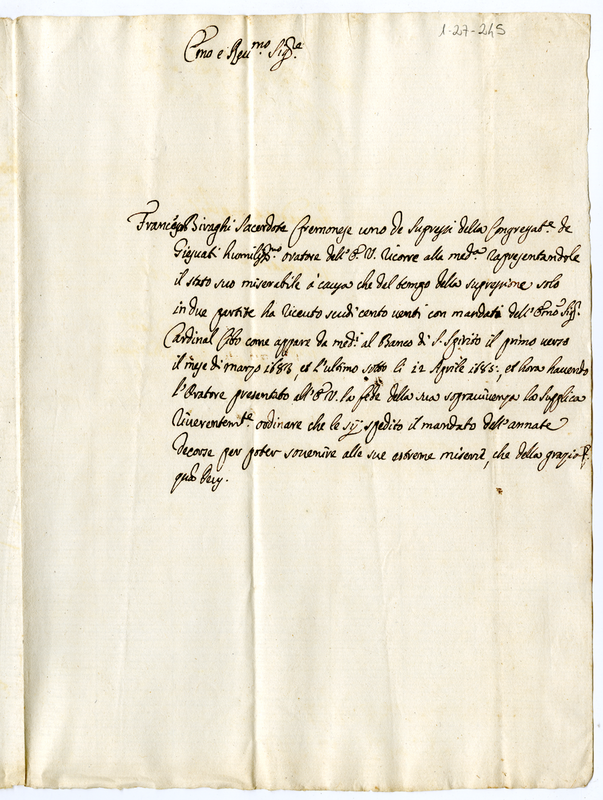 1-27-245
Emo e Reu.mo Sig.re
Francesco Biraghi Sacerdote Cremonese uno de Supressi della Congregat.e de
Giesuati humiliss.mo oratore dell'E.V. ricorre alla med.ma rapresentandole
il stato suo miserabile à causa che dal tempo della supressione solo
in due partite ha riceuto scudi cento uenti con mandati dell'Emo Sig.
Cardinal Cibo come appare da med.i al Banco di S. Spirito il primo uerso
il mese di marzo 1683, et l'ultimo sotto li 12 Aprile 1685, et hora hauendo
l'Oratore presentato all'E.V. la fede della sua sopraviuenza La Supplica
riuerentem.te ordinare che le sij spedito il mandato dell'annate
decorse per poter souenire alle sue estreme miserie, che della grazia
quam Deus.